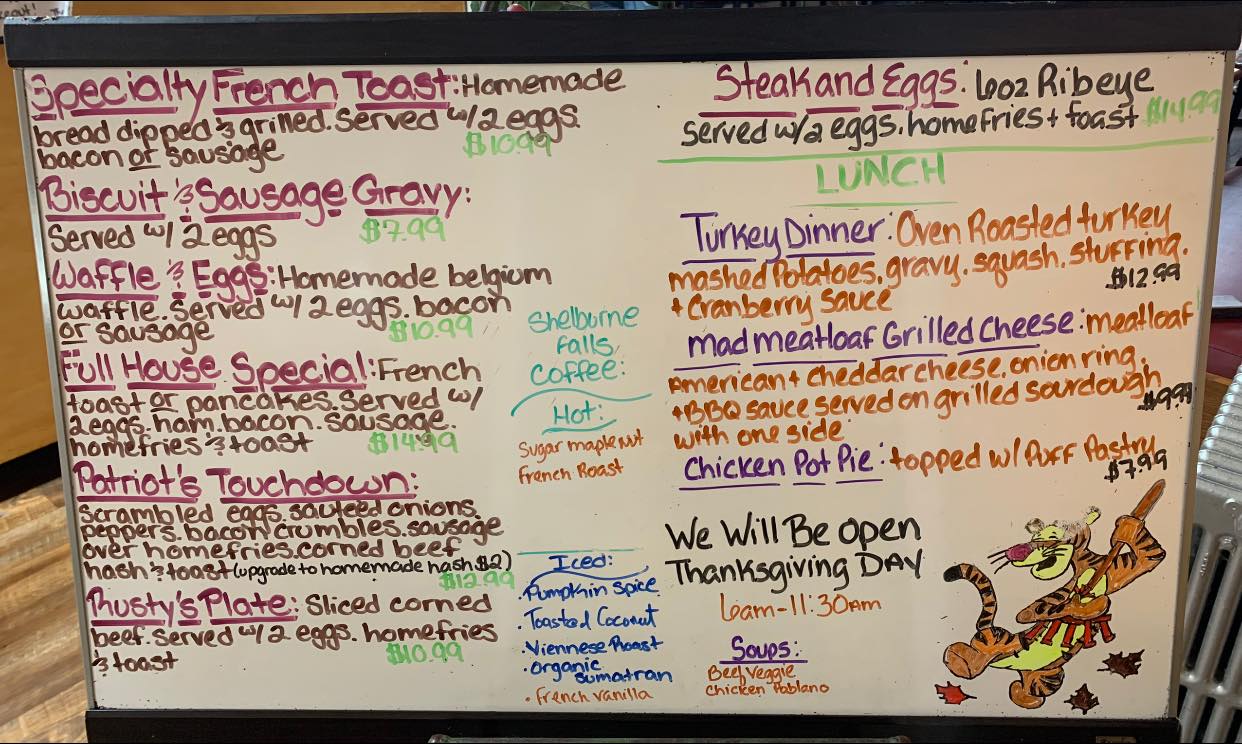 Specialty French Toast: Homemade
bread dipped & grilled. Served w/ 2 eggs
bacon or sausage $10.99
Biscuit & Sausage Gravy:
Served w/ 2 eggs $7.99
Waffle & Eggs: Homemade belgium
waffle. Served w/ 2 eggs. bacon
or sausage $10.99
Full House Special: French
toast or pancakes. Served w/
2 eggs. ham. bacon. sausage.
homefries & toast $14.99
Patriot's Touchdown:
scrambled eggs. sauteed onions.
peppers. bacon crumbles. sausage
over homefries. corned beef
hash & toast (upgrade to homemade hash $2)
$12.99
Rusty's Plate: Sliced corned
beef. Served w/ 2 eggs. homefries
& toast $10.99
Shelburne
Falls
Coffee:
Hot:
Sugar maple nut
French Roast
Iced:
· Pumpkin Spice
· Toasted Coconut
· Viennese Roast
· Organic
Sumatran
· French Vanilla
Steak and Eggs: 6oz Ribeye
Served w/ 2 eggs. homefries + toast $14.99
LUNCH
Turkey Dinner: Oven Roasted turkey
mashed Potatoes. gravy. squash. stuffing.
+ Cranberry Sauce $12.99
Mad meatloaf Grilled Cheese: meatloaf
American + Cheddar cheese. onion ring.
+ BBQ sauce served on grilled sourdough
with one side $9.99
Chicken Pot Pie: topped w/ Puff Pastry
$7.99
We Will Be Open
Thanksgiving DAY
6am-11:30am
Soups:
Beef Veggie
Chicken Poblano